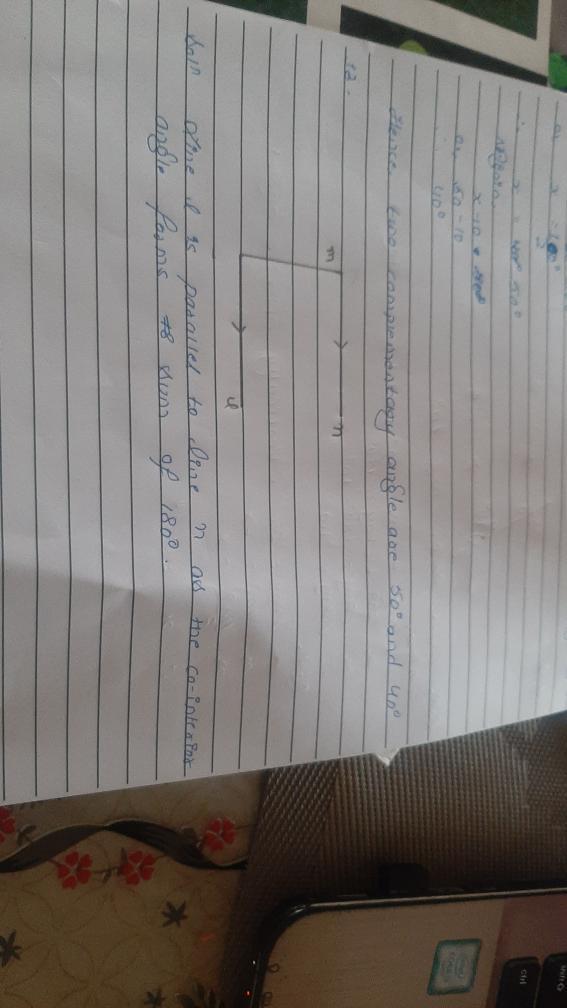 or x =
2
∴ x = 50°
Again
x - 10
or, 50 - 10
∴ 40°
Hence two complementary angle are 50° and 40°
12.
m
n
l
Soln line l is parallel to line n as the co-interior
angle forms sum of 180°.
ctrl